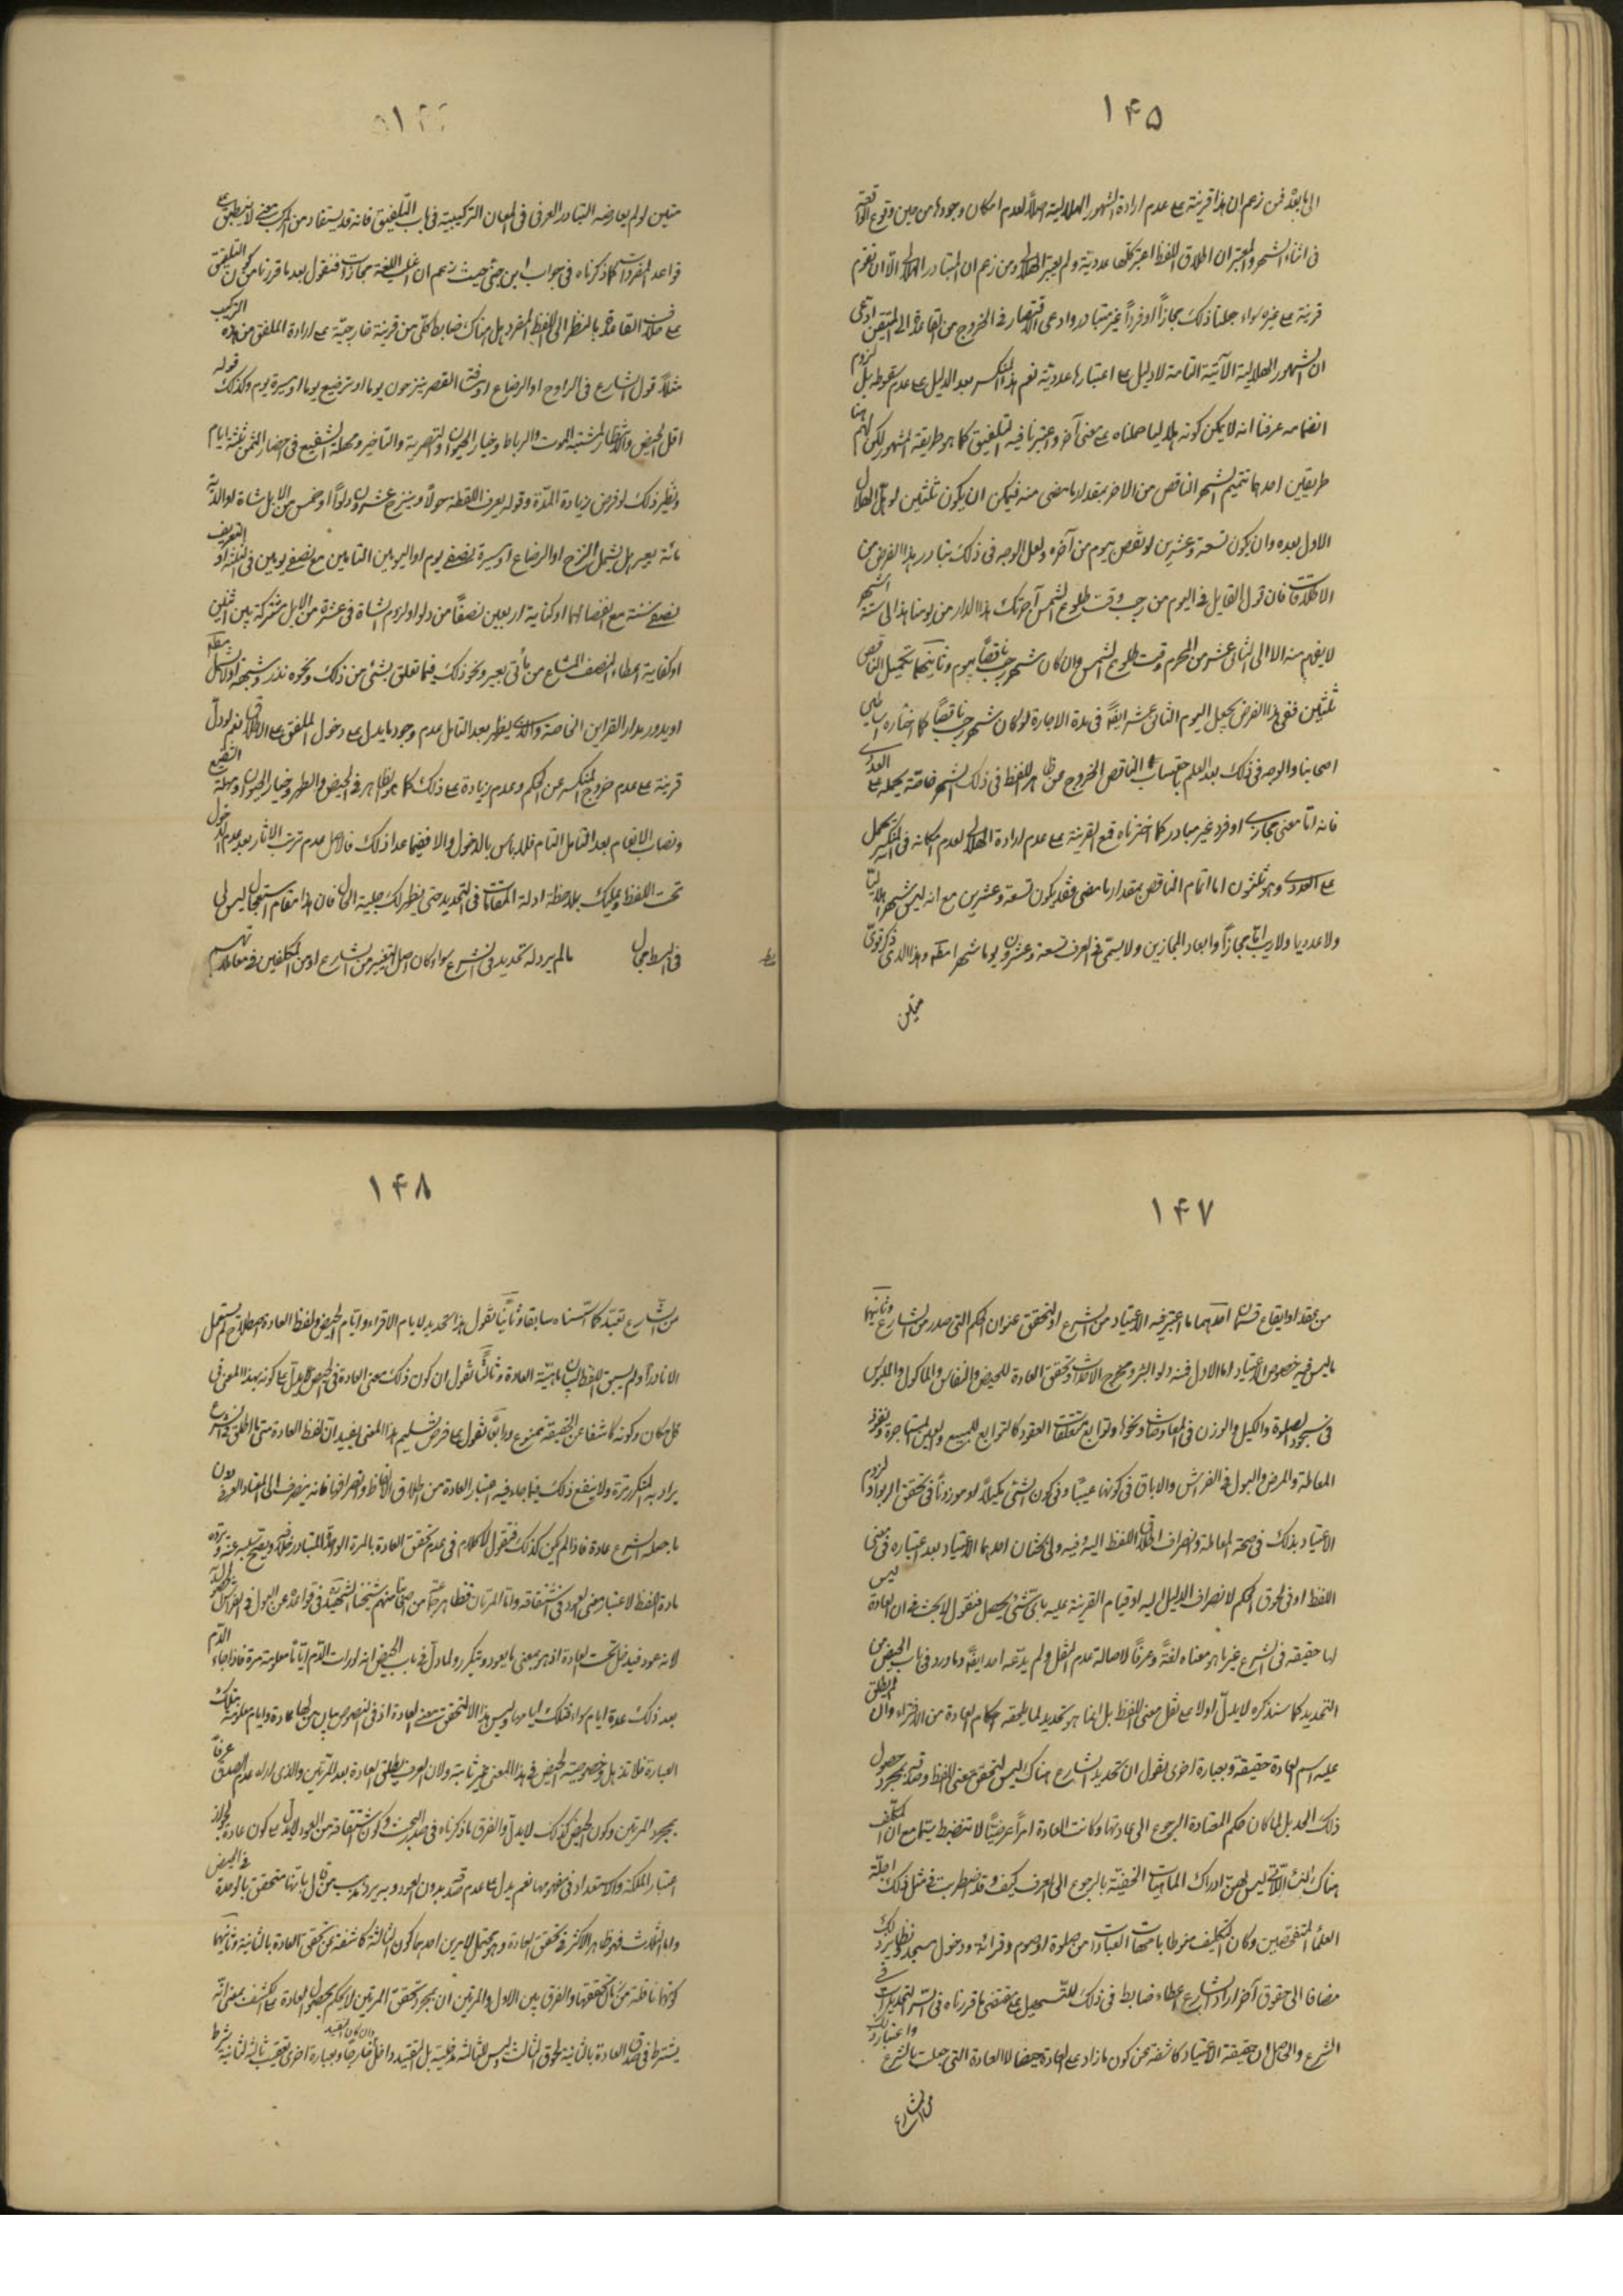 ١۴۵
الى ما بعد فمن زعم ان هذا قرينة على عدم ارادة الشهور الهلالية اصلاً لعدم امكان وجودها من حين وقوع الواقعة
فى اثناء الشهر والمعتبر ان اطلاق اللفظ اعتبر كلها عددية ولم يعتبر الهلالى ومن زعم ان المتبادر الهلالى الا ان تقوم
قرينة على غيره سواء جعلنا ذلك مجازاً او فرداً غير متبادر وادعى الاقتصار فى الخروج من القاعدة الى المتيقن ادعى
ان الشهور الهلالية الآتية التامة لا دليل على اعتبارها عددية نعم هذا المنكسر بعد الدليل على عدم سقوطه بل لزوم
انضمامه عرفنا انه لا يمكن كونه هلاليا حملناه على معنى آخر واعتبرنا فيه التلفيق كما هو طريقة المشهور لكن لهم هنا
طريقين احدهما تتميم الشهر الناقص من الاخر بمقدار ما مضى منه فيمكن ان يكون ثلثين لو هل الهلال
الاول بعده وان يكون تسعة وعشرين لو نقص بيوم من آخره ولعل الوجه فى ذلك تبادر هذا الفرض من
الاطلاقات فان قول القايل فى اليوم من رجب وقت طلوع الشمس آجرتك هذا الدار من يومنا هذا الى ستة اشهر
لا يفهم منه الا الى الثانى عشر من المحرم وقت طلوع الشمس وان كان شهر رجب ناقصاً بيوم وثانيهما تكميل الناقص
ثلثين ففى هذا الفرض يجعل اليوم الثانى عشر ايضاً فى مدة الاجارة لو كان شهر رجب ناقصاً كما اختاره اساطين
اصحابنا والوجه فى ذلك بعد العلم باحتساب الناقص الخروج عن ظاهر اللفظ فى ذلك الشهر خاصة يحمله على العددى
فانه اما معنى مجازى او فرد غير متبادر كما اخترناه فمع القرينة على عدم ارادة الهلالى لعدم امكانه فى المنكسر يحمل
على العددى وهو ثلثون اما اتمام الناقص بمقدار ما مضى فقد يكون تسعة وعشرين مع انه ليس شهراً هلالياً
ولا عدديا ولا ريب انه مجازاً وابعد المجازين ولا يسمى فى العرف تسعة وعشرون يوما شهراً مطلقه وهذا الذى ذكر قوى
متين
متين لو لم يعارضه التبادر العرفى فى المعان التركيبية فى باب التلفيق فانه قد يستفاد من المركب معنى لا ينطبق على
قواعد المفردات كما ذكرناه فى جواب ابن جنى حيث زعم ان اغلب اللغة مجازات فنقول بعد ما قررنا من كون التلفيق
على خلاف القاعدة بالنظر الى اللفظ المفرد هل هناك ضابط كلى من قرينة خارجية على ارادة الملفق من هذه التركيب
مثلاً قول الشارع فى التراوح او الرضاع او وقتا القصر ينزحون يوما او ترضيع يوما او مسيرة يوم وكذلك قوله
اقل الحيض والانتظار لمشتبه الموت والرباط وخيار الحيوان والتصرية والتاخير ومهلة الشفيع فى احضار الثمن ثلثة ايام
ونظير ذلك لو فرض زيادة المدة وقوله يعرف اللقطة حولاً وينزح عشرون دلواً او خمس من الابل شاة او الدية
مائة بعير هل يشمل النزح او الرضاع او مسيرة نصفى يوم او اليومين التامين مع نصفى يومين فى الثلثة او التعريف
نصفى سنة مع الفضائها او كفاية اربعين نصفاً من دلو او لزوم الشاة فى عشرة من الابل مشتركة بين اثنين
او كفاية اعطاء النصف المشاع من مأتى بعير ونحو ذلك فيما تعلق بشئ من ذلك ونحوه نذر وشبهه او لا يشمل مطلقه
او يدور مدار القراين الخاصة والذى يظهر بعد التامل عدم وجود ما يدل على دخول الملفق على الاطلاق نعم لو دل
قرينة على عدم خروج المنكسر عن الحكم وعدم زيادة على ذلك كما هو الظاهر فى الحيض والطهر وخيار الحيوان ومهلة الشفيع
ونصاب الانعام بعد التامل التام فلا باس بالدخول والا ففيما عدا ذلك فالاصل عدم ترتب الاثار بعد عدم الدخول
تحت اللفظ وعليك بملاحظة ادلة المقامات فى التحديد حتى يظهر لك جلية الحال فان هذا مقام استعجال ليس لى
فى البسط مجال ما لم يرد له تحديد فى الشرع سواء كان اصل التغيير من الشارع او من المكلفين فى معاملاتهم
١۴٧
من عقد او ايقاع قسمان احدهما ما اعتبر فيه الاعتياد من الشرع او لتحقق عنوان الحكم التى صدر من الشارع وثانيهما
ما ليس فيه خصوص الاعتياد اما الاول فمنه دلو البئر ومخرج الاحداث وتحقق العادة للحيض والنفاس والماكول والملبوس
فى سجود الصلوة والكيل والوزن فى المعاوضات ونحوها وتوابع متعلقات العقود كالتوابع للمبيع والعين المستاجرة ونفوذ
المعاملة والمرض والبول فى الفراش والاباق فى كونها عيباً وفى كون الشئ مكيلاً او موزوناً فى تحقق الربوا ولزوم
الاعتياد بذلك فى صحة المعاملة وانصراف اطلاق اللفظ اليه وفيه ولى بحثان احدهما الاعتياد بعد اعتباره فى معنى
اللفظ او فى لحوق الحكم لانصراف الدليل اليه او قيام القرينة عليه باى شئ يحصل فنقول لا بحث فى ان العادة ليس
لها حقيقة فى الشرع غير ما هو معناه لغةً وعرفاً لاصالة عدم النقل ولم يدّعه احد ايضاً وما ورد فى باب الحيض من
التحديد كما سنذكره لا يدل اولا على نقل معنى اللفظ بل انما هو تحديد لما يلحقه احكام العادة من الاقراء وان لم يطلق
عليه اسم العادة حقيقة وبعبارة اخرى نقول ان تحديد الشارع هناك ليس لتحقق معنى اللفظ وصدقه بمجرد حصول
ذلك الحد بل لما كان حكم المعتادة الرجوع الى عادتها وكانت العادة امراً عرضياً لا تنضبط سيّما مع ان المكلف
هناك النساء اللاتى ليس لهن ادراك الماهيات الخفية بالرجوع الى العرف كيف وقد اضطربت فى مثل ذلك اجلّة
العلماء المتفحصين وكان التكليف منوطا بامهات العبادات من صلوة او صوم وقرائة ودخول مسجد ونظاير ذلك
مضافا الى حقوق آخر اراد الشارع اعطاء ضابط فى ذلك للتسهيل على مقتضى ما قررناه فى سر التحديدات فى
الشرع والحاصل ان حقيقة الاعتياد كاشفة عن كون ما زاد على العادة حيضا لا العادة التى جعلت بالشرع واعتبار ذلك
من الشارع
١۴٨
من الشارع تعبد كما اسسناه سابقا وثانياً نقول هذا تحديد لايام الاقراء وايام الحيض ولفظ العادة اصطلاح لم يستعمل
الا نادراً ولم يسبق اللفظ لبيان ماهية العادة وثالثاً نقول ان كون ذلك معنى العادة فى الحيض لا يدل على كونه بهذا المعنى فى
كل مكان وكونه كاشفا عن الحقيقة ممنوع ورابعاً نقول على فرض تسليم هذا المعنى يفيد ان لفظ العادة متى اطلق فى الشرع
يراد به المتكرر مرة ولا ينفع ذلك فيما جاء فيه اعتبار العادة من اطلاق الالفاظ وانصرافها فانه ينصرف الى المعتاد العرفى دون
ما جعله الشرع عادة فاذا لم يكن كذلك فنقول لا كلام فى عدم تحقق العادة بالمرة الواحدة للتبادر خلافه ويصح سلبه عنه وترده
مادة اللفظ لاعتبار معنى العود فى اشتقاقه واما المرتان فظاهر جماعة من اصحابنا منهم شيخنا الشهيد فى قواعده عن البول فى الفراش تحصل
لانه عود فيدخل تحت العادة اذ هى بمعنى ما يعود ويتكرر ولما دل فى باب الحيض انه لو رات الدم ايّاماً معلومة مرة فاذا جاء الدم
بعد ذلك عدة ايام سواء فتلك ايامها وليس هذا الا لتحقق معنى العادة اذ فى النصوص بيان من لها عادة وايام معلومة بتلك
العبارة فلا تذهل وخصوصية الحيض فى هذا المعنى غير ثابتة ولان العرف يطلق العادة بعد المرتين والذى اراه عدم الصدق عرفاً
بمجرد المرتين وكون الحيض كذلك لا يدل والفرق ما ذكرناه فى صدر البحث وكون اشتقاقه من العود لا يدل على كون عادة لجواز
اعتبار الملكة والاستعداد فى مفهومها نعم يدل على عدم صدقه بدون العود وبه يرد مذهب من قال بانها متحقق بالوحدة فى الحيض
واما الثلاث فهو ظاهر الاكثر فى تحقق العادة وهو يحتمل لامرين احدهما كون الثالثة كاشفة عن تحقق العادة بالثانية وثانيهما
كونها ناقلة من ان تحققها والفرق بين الاول والمرتين ان بمجرد تحقق المرتين لا يحكم بحصول العادة على الكشف بمعنى انه
يشترط فى صدق العادة بالثانية لحوق الثالث وليس للثالثة مدخلية بل التقييد داخل وان كان القيد خارجا وبعبارة اخرى تعقيب ثالثة لثانية شرط